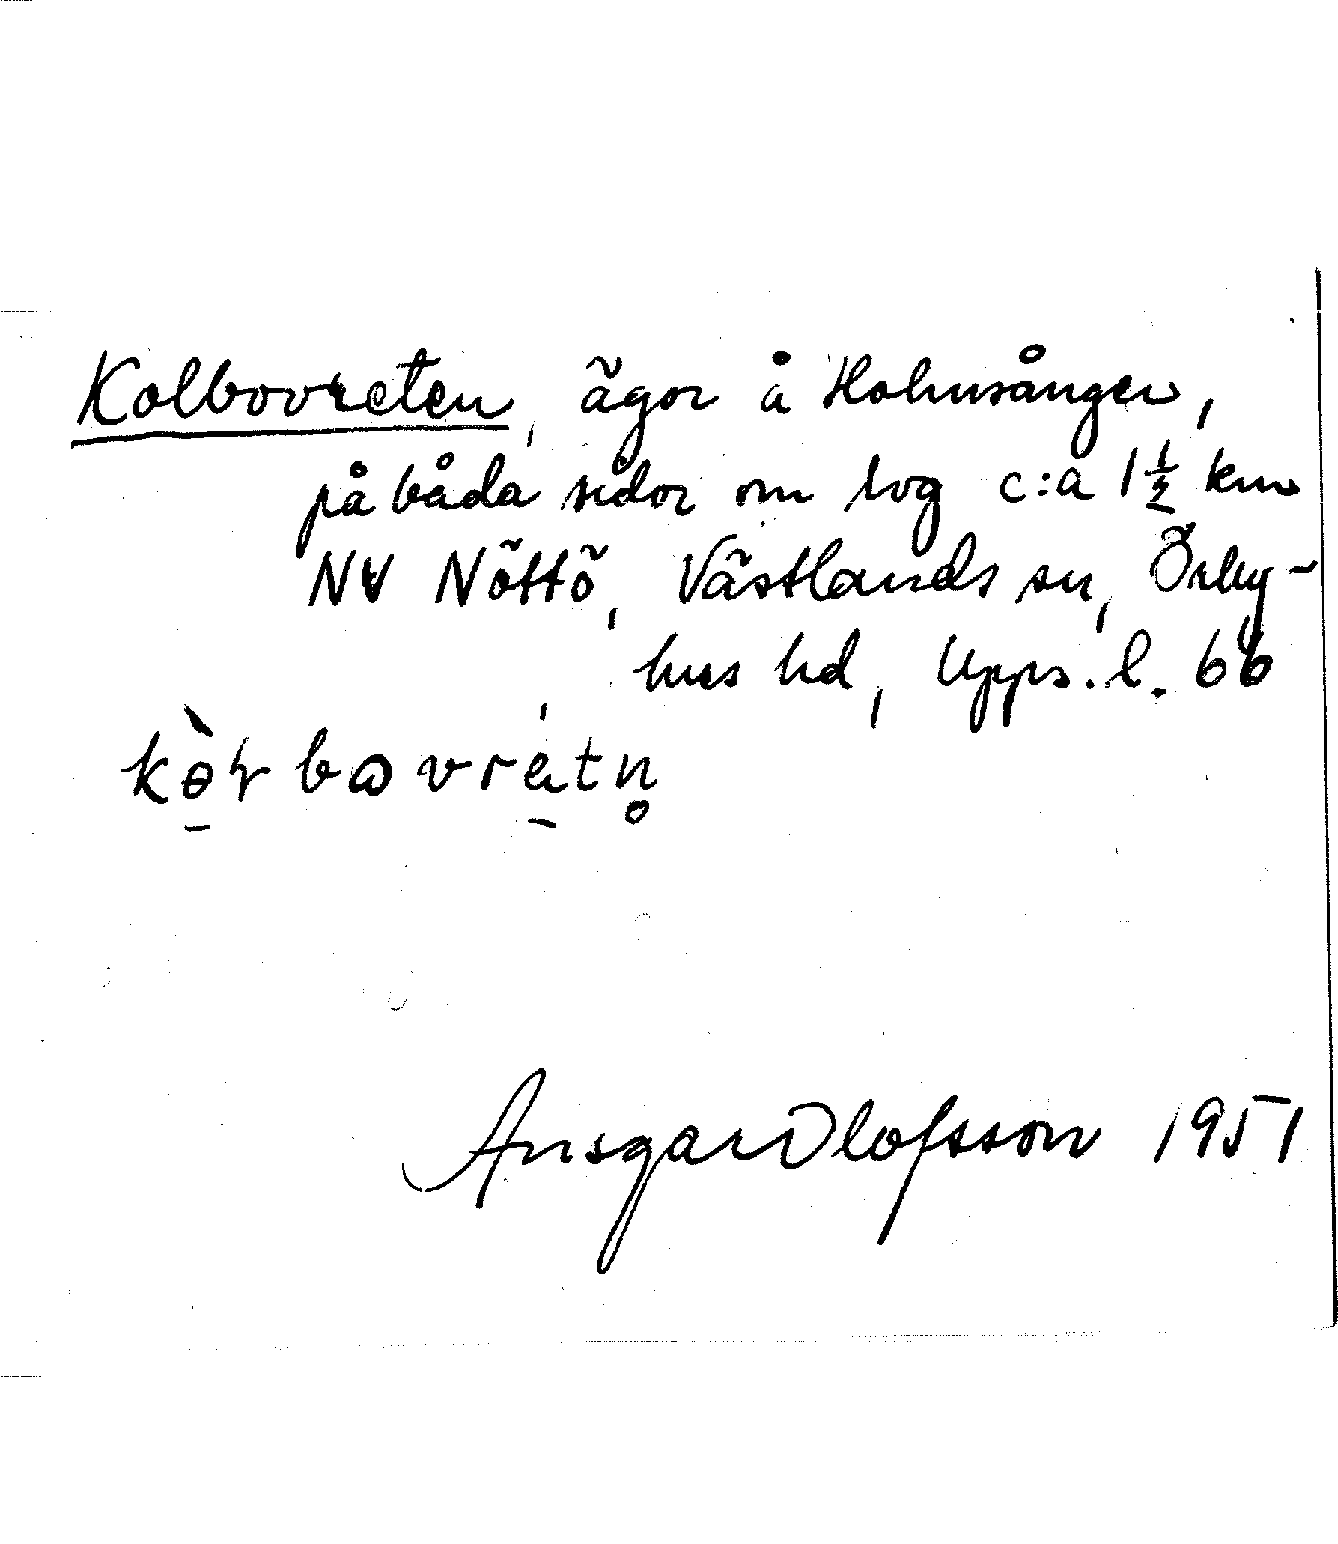 Kolbovreten, ägor å Holmsånger,
på båda sidor om lvg c:a 1½ km
NV Nöttö, Västlands sn, Örby-
hus hd, Upps. l. 66
kɵ̀ɽbɷvretn̥
Ansgar Olofsson 1951